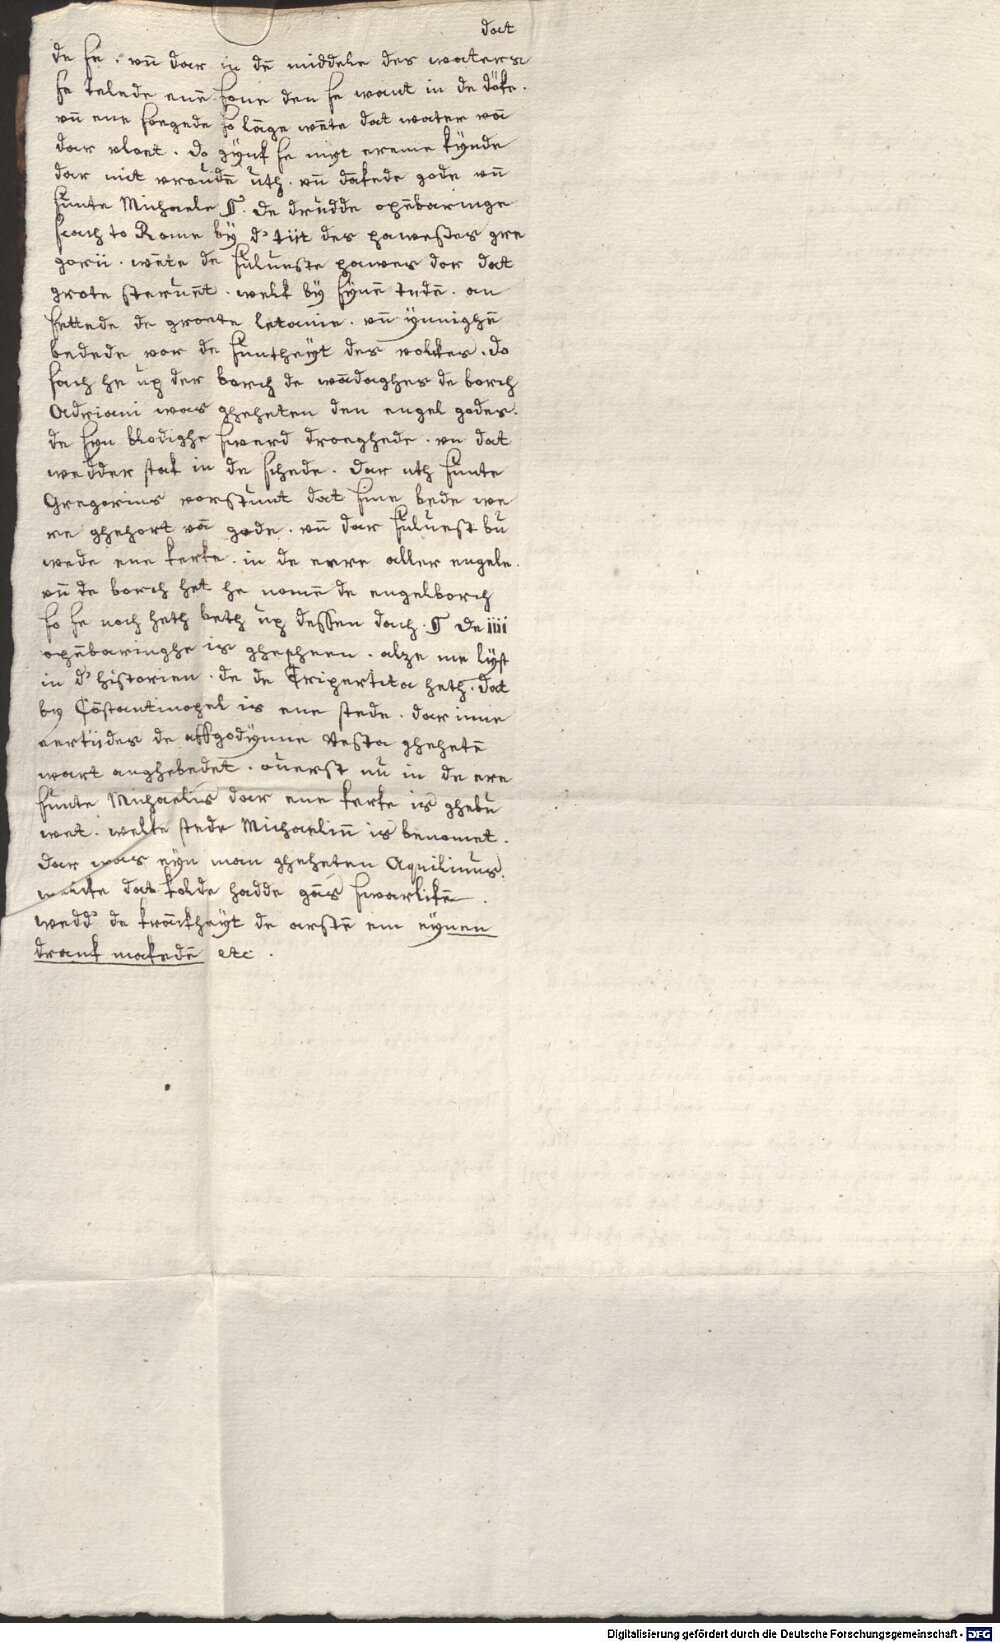 dat
de se . vn̄ dar in dē middele des waters
se telede enē sone den se want in de döke .
vn̄ ene soegede so lāge wēte dat water vā
dar vloet . do gÿnk se mÿt ereme kÿnde
dar mit vroudē ůth . vn̄ dākede gode vn̄
sunte Michaele ¶. De drudde opēbaringe
scach to Rome bÿ d' tiit des pawestes gre
gorii . wēte de sulueste pawes dor dat
grote steruēt . welk bÿ sÿnē tydē . an
settede de groete letanie . vn̄ ÿnnighē
bedede vor de suntheÿt des volkes . do
sach he ůp der borch de wādaghes de borch
Adriani was gheheten den engel godes .
de syn blodighe swerd droeghede . vn dat
wedder stak in de schede . dar uth sunte
Gregorius vorstunt dat sine bede we
re ghehort vā gode . vn̄ dar suluest bu
wede ene kerke . in de erre aller engele .
vn̄ de borch het he nomē de engelborch
so se noch heth beth ůp dessen dach . ¶ De iiii
opēbaringhe is gescheen . alze me lÿst
in d' historien . de de Tripertita heth . dat
by Cōstantinopel is ene stede . dar inne
eertiides de affgodÿnne Vesta ghehetē
wart anghebedet . ouerst nu in de ere
sunte Michaelis dar ene kerke is ghebu
wet . welke stede Michaelin̄ is benomet .
dar was eÿn man gheheten Aquilinus .
dat kolde hadde gās swarlikē .
wedd' de krākheÿt de arstē em eÿnen
drank makedē etc .
Digitalisierung gefördert durch die Deutsche Forschungsgemeinschaft - DFG